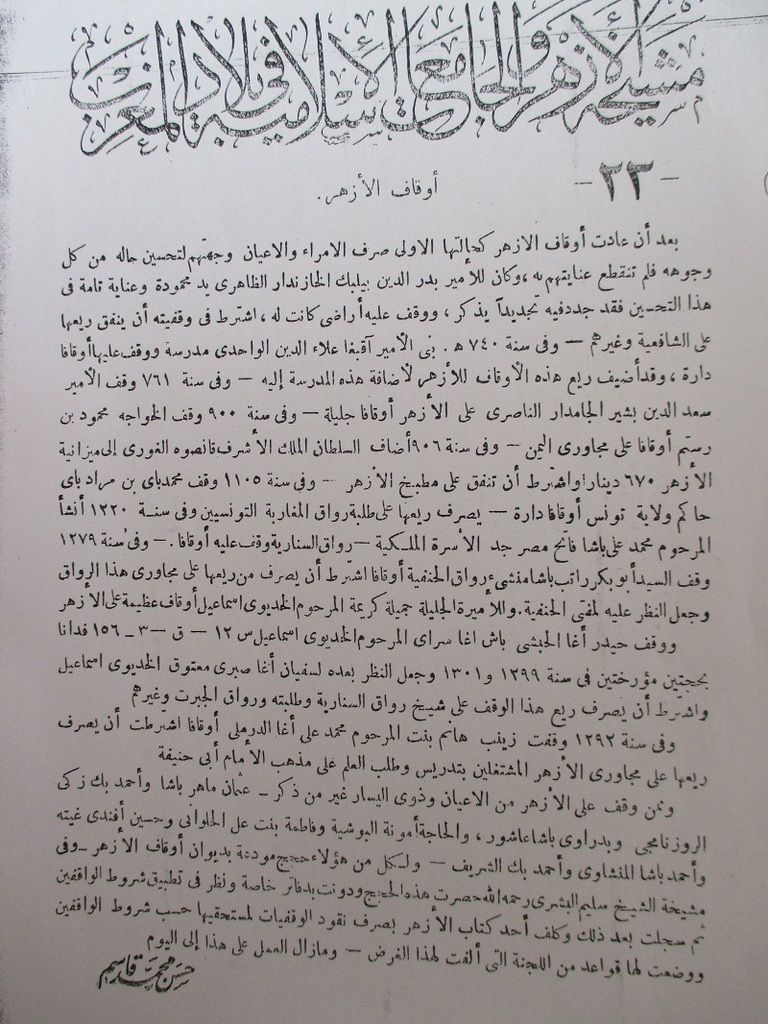 مشيخة الأزهر والجامعة الإسلامية في بلاد المغرب
- ٢٣ -
أوقاف الأزهر.
بعد أن عادت أوقاف الازهر كحالتها الاولى صرف الامراء والاعيان وجهتهم لتحسين حاله من كل
وجوهه فلم تنقطع عنايتهم به ، وكان للأمير بدر الدين بيليك الخازندار الظاهرى يد محمودة وعناية تامة فى
هذا التحسين فقد جدد فيه تجديداً يذكر ، ووقف عليه أراضى كانت له ، اشترط فى وقفيته أن ينفق ريعها
على الشافعية وغيرهم — وفى سنة ٧٤٠ هـ . بنى الأمير آقبغا علاء الدين الواحدى مدرسة ووقف عليها أوقافا
دارة ، وقد أضيف ريع هذه الأوقاف للأزهر لأضافة هذه المدرسة إليه — وفى سنة ٧٦١ وقف الأمير
سعد الدين بشير الجامدار الناصرى على الأزهر أوقافا جليلة — وفى سنة ٩٠٠ وقف الخواجه محمود بن
رستم أوقافا على مجاورى اليمن — وفى سنة ٩٠٦ أضاف السلطان الملك الأشرف قانصوه الغورى إلى ميزانية
الأزهر ٦٧٠ دينارا واشترط أن تنفق على مطبخ الأزهر — وفى سنة ١١٠٥ وقف محمد باى بن مراد باى
حاكم ولاية تونس أوقافا دارة — يصرف ريعها على طلبة رواق المغاربة التونسيين وفى سنة ١٢٢٠ أنشأ
المرحوم محمد على باشا فاتح مصر جد الأسرة الملكية — رواق السنارية وقف عليه أوقافا . — وفى سنة ١٢٧٩
وقف السيد أبو بكر راتب باشا منشىء رواق الحنفية أوقافا اشترط أن يصرف من ريعها على مجاورى هذا الرواق
وجعل النظر عليه لمفتى الحنفية . وللأميرة الجليلة جميلة كريمة المرحوم الخديوى اسماعيل أوقاف عظيمة على الأزهر
ووقف حيدر أغا الحبشى باش اغا سراى المرحوم الخديوى اسماعيل س ١٢ — ق — ٣ — ١٥٦ فدانا
بحجتين مؤرختين فى سنة ١٢٩٩ و ١٣٠١ وجعل النظر بعده لسفيان أغا صبرى معتوق الخديوى اسماعيل
واشترط أن يصرف ريع هذا الوقف على شيخ رواق السنارية وطلبته ورواق الجبرت وغيرهم
وفى سنة ١٢٩٢ وقفت زينب هانم بنت المرحوم محمد على أغا الدرملى أوقافا اشترطت أن يصرف
ريعها على مجاورى الأزهر المشتغلين بتدريس وطلب العلم على مذهب الأمام أبى حنيفة
وممن وقف على الأزهر من الاعيان وذوى اليسار غير من ذكر — عثمان ماهر باشا وأحمد بك زكى
الروزنامجى وبدراوى باشا عاشور ، والحاجة أمونة البوشية وفاطمة بنت على الحلوانى وحسين أفندى غيته
وأحمد باشا المنشاوى وأحمد بك الشريف — ولكل من هؤلاء حجج مودعة بديوان أوقاف الأزهر — وفى
مشيخة الشيخ سليم البشرى رحمه الله حصرت هذه الحجج ودونت بدفاتر خاصة ونظر فى تطبيق شروط الواقفين
ثم سجلت بعد ذلك وكلف أحد كتاب الأزهر بصرف نقود الوقفيات لمستحقيها حسب شروط الواقفين
ووضعت لها قواعد من اللجنة التى ألفت لهذا الغرض — ومازال العمل على هذا إلى اليوم
حسن محمد قاسم